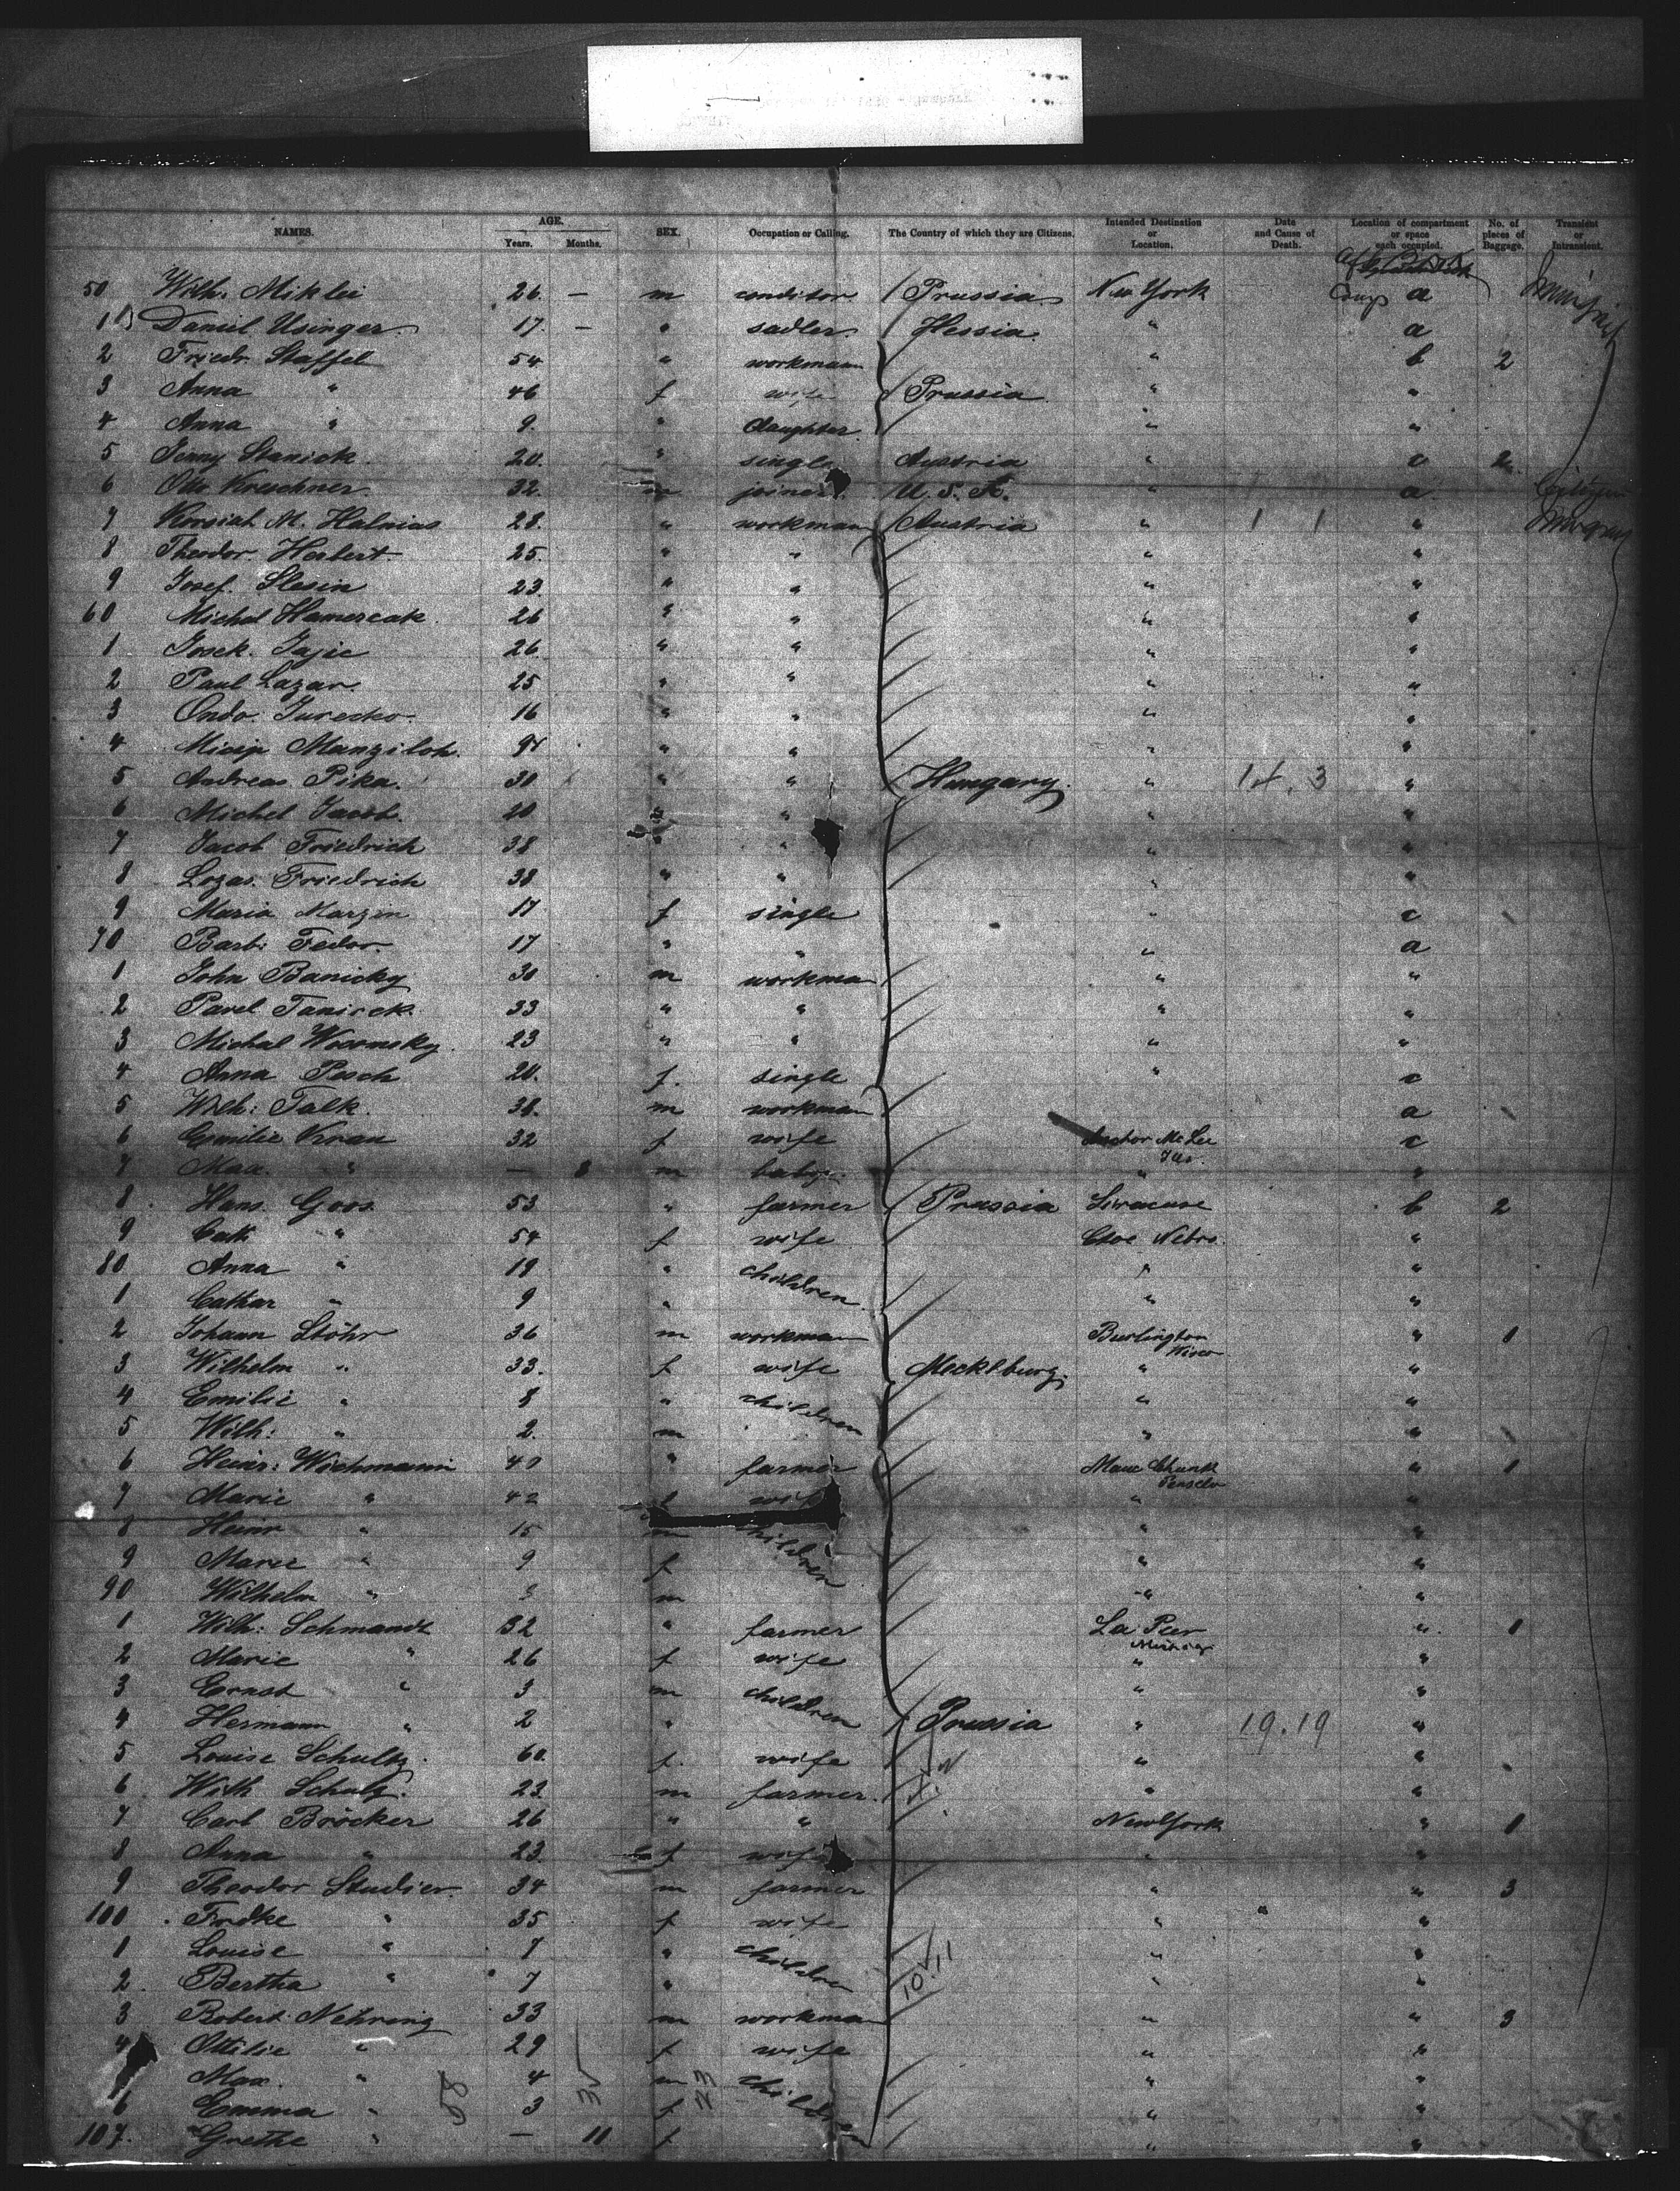 NAMES. AGE. Years. Months. SEX. Occupation or Calling. The Country of which they are Citizens. Intended Destination or Location. Date and Cause of Death. Location of compartment or space each occupied. No. of pieces of Baggage. Transient or Intransient.
50 Wilh. Miklei 26 — m conditor Prussia New York Comp a
1 Daniel Usinger 17 — " sadler Hessia " a
2 Friedr. Staffel 54 " workmann " b 2
3 Anna " 46 f wife Prussia " "
4 Anna " 9 " daughter " "
5 Jenny Stanick 20 " single Austria " c 2
6 Otto Kreschner 32 m joiner U.S.A. " a
7 M. Halnias 28 " workman Austria " 1 1 "
8 Theodor Herbert 25 " " " "
9 Josef Slesin 23 " " " "
60 Michal Hamercak 26 " " " "
1 Josek. Jajic 26 " " " "
2 Paul Lazar 25 " " " "
3 Ondo Jurecko 16 " " " "
4 Manziloh " " " "
5 Andreas Pika 30 " " Hungary " 14. 3 "
6 Michel Jacob 20 " " " "
7 Jacob Friedrich 38 " " " "
8 Lozas Friedrich 38 " " " "
9 Maria Margin 17 f single " c
70 Barb: Fedor 17 " " " a
1 John Banicky 30 m workman " "
2 Pavel Tanicek 33 " " " "
3 Michal 23 " " " "
4 Anna Pesch 20 f. single " c
5 Wilh: Falk 38 m workman a
6 Emilie Kran 32 f wife Anchor McLee Ills. c
7 Max " — 8 m baby " "
8 Hans Goos 53 " farmer Prussia Siracuse b 2
9 Cath " 54 f wife Ctoe Nebrs. "
80 Anna " 19 " children " "
1 Cathar " 9 " " "
2 Johann Stöhr 36 m workman Burlington Wisco " 1
3 Wilhelm " 33. f wife Mecklburg. " "
4 Emilie " 8 " children " "
5 Wilh: " 2 m " "
6 Heinr: Wichmann 40 " farmer Mauc Chunk " 1
7 Marie " 42 f wife " "
8 Heinr " 15 m children " "
9 Marie " 9 f " "
90 Wilhelm " 3 m " "
1 Wilh: Schmandt 32 " farmer La Peer " 1
2 Marie " 26 f wife " "
3 Ernst " 3 m children " "
4 Hermann " 2 " Prussia " 19.19 "
5 Louise Schultz 60 f. wife " "
6 Wilh Schulz. 23 m farmer. " "
7 Carl Bröcker 26 " " New York " 1
8 Anna " 23 f wife " "
9 Theodor Studier 34 m farmer " " 3
100 Fredke " 35 f wife " "
1 Louise " 7 " children " "
2 Bertha " 7 " " "
3 Robert Nehring 33 m workman " " 3
4 Ottilie " 29 f wife " "
Max " 4 m children " "
6 Emma " 3 f " "
107. Grethe " — 11 f " "
10.11
58 35 23